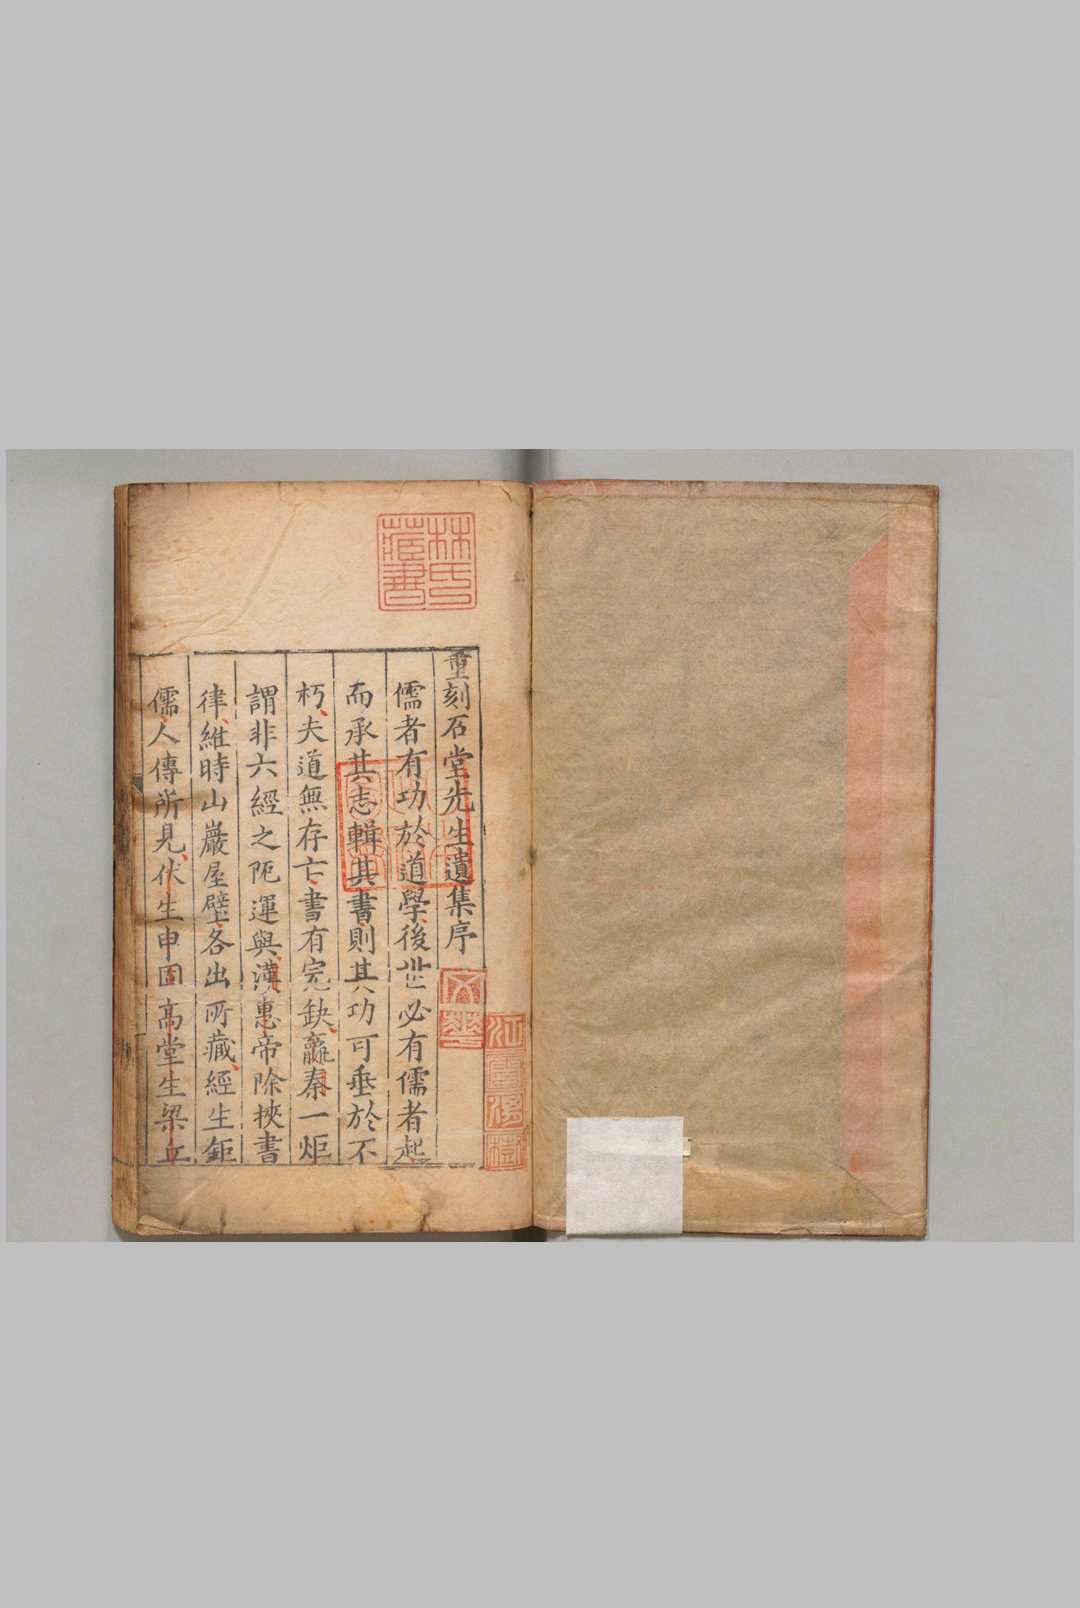 重刻石堂先生遺集序
儒者有功於道學後世必有儒者起
而承其志輯其書則其功可垂於不
朽夫道無存亡書有完缺嬴秦一炬
謂非六經之阨運與漢惠帝除挾書
律維時山巖屋壁各出所藏經生鉅
儒人傳所見伏生申固高堂生梁丘
林氏藏書